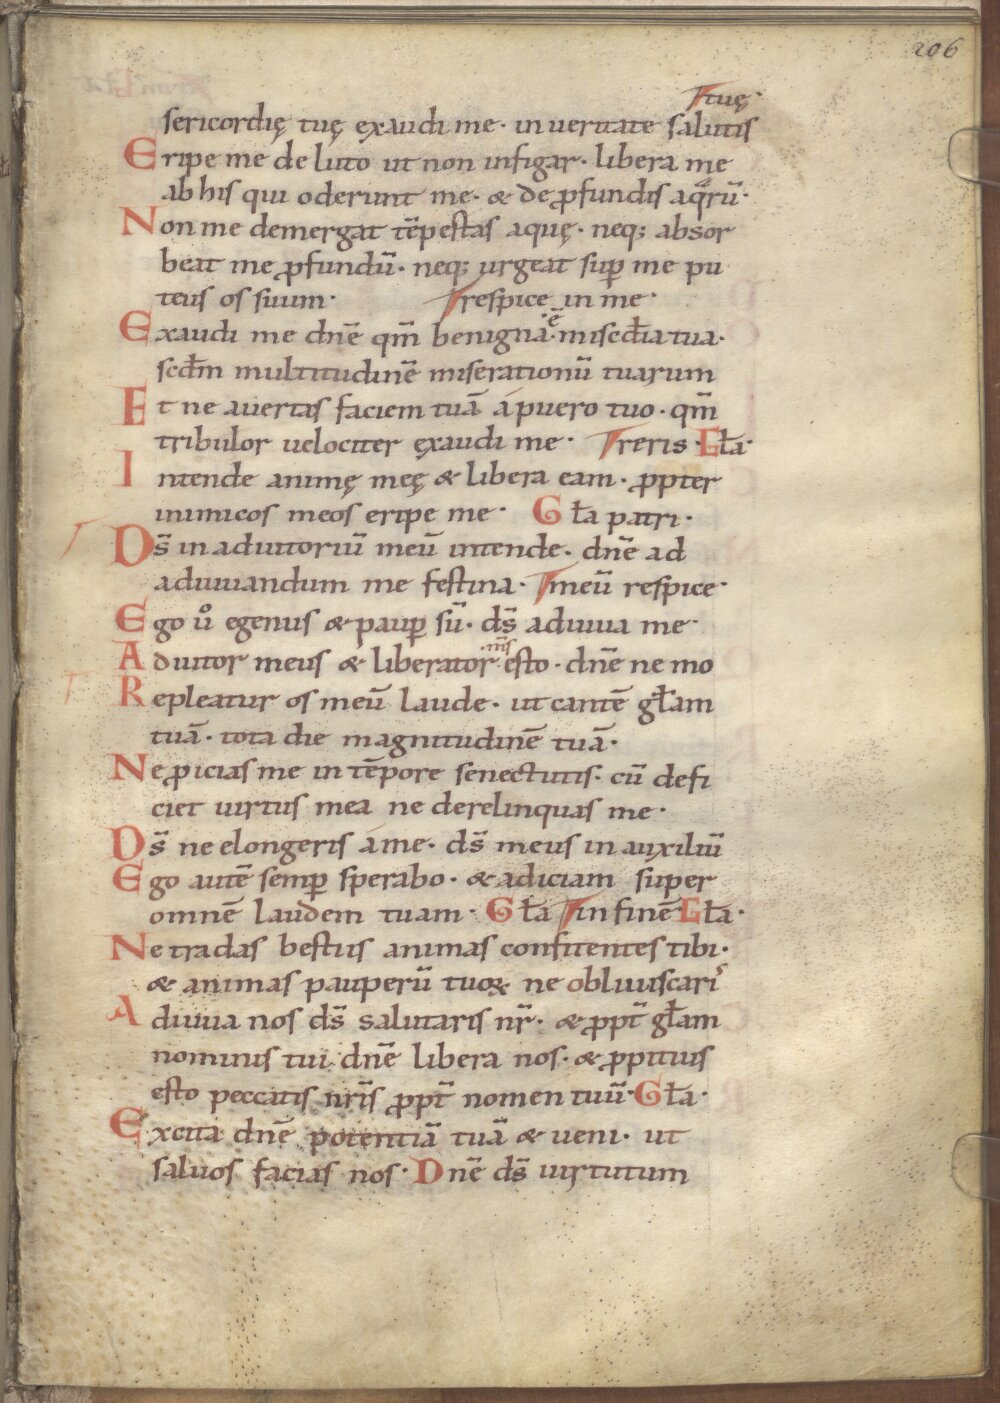 206
tuę·
sericordię tuę exaudi me· in ueritate salutis
Eripe me de luto ut non infigar· libera me
ab his qui oderunt me· & de ꝓfundis aq̄rū·
Non me demergat tēpestas aquę· neq; absor
beat me ꝓfundū· neq; urgeat suꝑ me pu
teus os suum· respice in me·
Exaudi me dn̄e qm̄ benigna· ē· misc̄dia tua·
scd̄m multitudinē miserationū tuarum
Et ne auertas faciem tuā á puero tuo· qm̄
tribulor uelociter ęxaudi me· reris· Gła·
Intende animę meę & libera eam· ꝓpter
inimicos meos eripe me· Gła patri·
Ds̄ in adiutoriū meū intende· dn̄e ad
adiuuandum me festina· meū respice·
Ego ů egenus & pauꝑ sū· ds̄ adiuua me·
Adiutor meus & liberator· m̄s esto· dn̄e ne mo
Repleatur os meū laude· ut cantē głam
tuā· tota die magnitudinē tuā·
Ne ꝓicias me in tēpore senectutis· cū defi
ciet uirtus mea ne derelinquas me·
Ds̄ ne elongeris á me· ds̄ meus in auxiliū
Ego autē semꝑ sperabo· & adiciam super
omnē laudem tuam· Gła in finē Gła·
Ne tradas bestiis animas confitentes tibi·
& animas pauperū tuoꝝ ne obliuiscaris
Adiuua nos ds̄ salutaris nr̄· & ꝓpt̄ głam
nominis tui dn̄e libera nos· & ꝓpitius
esto peccatis nr̄is ꝓpt̄ nomen tuū· Gła·
Excita dn̄e potentiā tuā & ueni· ut
saluos facias nos· Dn̄e ds̄ uirtutum